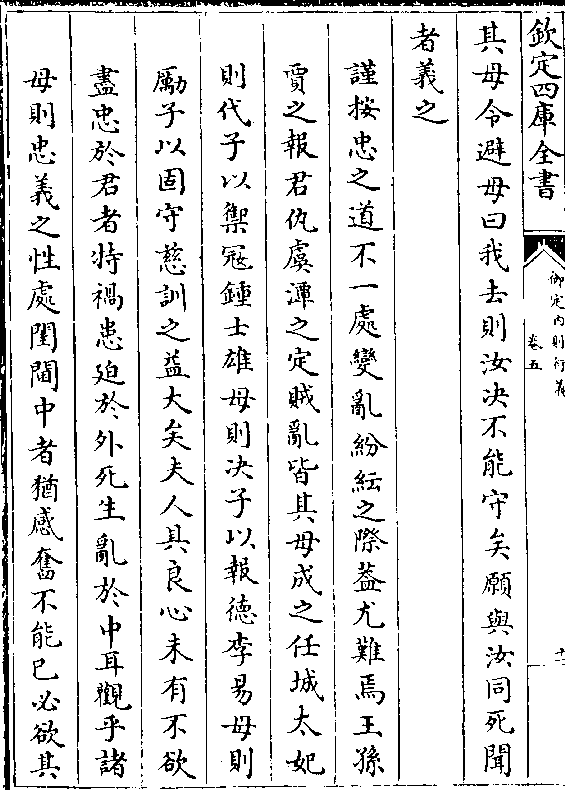 欽定四庫全書
御定內則衍義
卷五
十二
其母令避母曰我去則汝決不能守矣願與汝同死聞
者義之
謹按忠之道不一處變亂紛紜之際葢尤難焉王孫
賈之報君仇虞潭之定賊亂皆其母成之任城太妃
則代子以禦冦鍾士雄母則決子以報徳李易母則
勵子以固守慈訓之益大矣夫人具良心未有不欲
盡忠於君者特禍患迫於外死生亂於中耳觀乎諸
母則忠義之性處閨閫中者猶感奮不能已必欲其